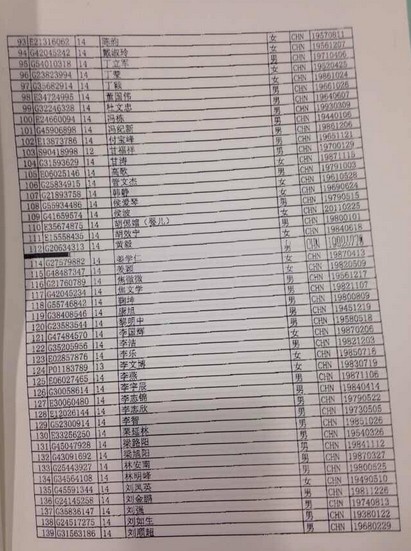 93 E21316062 14 女 CHN 19570811
94 G42045242 14 戴淑玲 女 CHN 19561207
95 G54010318 14 丁立军 男 CHN 19710406
96 G23823994 14 丁莹 女 CHN 19520425
97 G35682914 14 丁颖 女 CHN 19861024
98 E34724995 14 董国伟 男 CHN 19661026
99 G32246328 14 杜文忠 男 CHN 19640607
100 E24660094 14 冯栋 男 CHN 19930309
101 G45906898 14 冯纪新 男 CHN 19440106
102 E13873786 14 付宝峰 男 CHN 19861206
103 S90418998 12 甘福祥 男 CHN 19651121
104 G31593629 14 甘涛 男 CHN 19700129
105 E06025146 14 高歌 女 CHN 19871115
106 G25834915 14 管文杰 男 CHN 19791003
107 G21893758 14 韩静 女 CHN 19610528
108 G55934486 14 侯爱琴 女 CHN 19690624
109 G41659574 14 侯波 男 CHN 19790515
110 E35674875 14 胡偲婠（婴儿） 女 CHN 20110225
111 E15558435 14 胡效宁 男 CHN 19800101
112 G20634313 14 黄毅 女 CHN 19840618
114 G27579882 14 姜学仁 男
115 G48487347 14 姜颖 女 CHN 19870413
116 G21760789 14 焦微微 女 CHN 19820509
117 G42045234 14 焦文学 男 CHN 19561217
118 G55746842 14 鞠坤 男 CHN 19821107
119 G38408546 14 康旭 男 CHN 19800809
120 G23583544 14 黎明中 男 CHN 19451219
121 G47484570 14 李国辉 男 CHN 19580518
122 G35205956 14 李洁 女 CHN 19870206
123 E02857876 14 李乐 男 CHN 19821203
124 P01183789 13 李文博 男 CHN 19850716
125 E06027465 14 李燕 女 CHN 19830719
126 G30058614 14 李宇辰 男 CHN 19871106
127 E30060480 14 李志锦 男 CHN 19840414
128 E12026144 14 李志欣 男 CHN 19790522
129 G52300914 14 李智 男 CHN 19730505
130 E33256250 14 男 CHN 19851026
131 G45047928 14 梁路阳 男 CHN 19540326
132 G43091692 14 梁旭阳 男 CHN 19841112
133 G25443927 14 林安南 男 CHN 19870327
134 G34564108 14 林明峰 男 CHN 19800525
135 G45591344 14 刘凤英 女 CHN 19490510
136 G24145258 14 刘金鹏 男 CHN 19811226
137 G35836147 14 刘强 男 CHN 19740813
138 G24517275 14 刘如生 男 CHN 19380122
139 G31563186 14 刘顺超 男 CHN 19680229